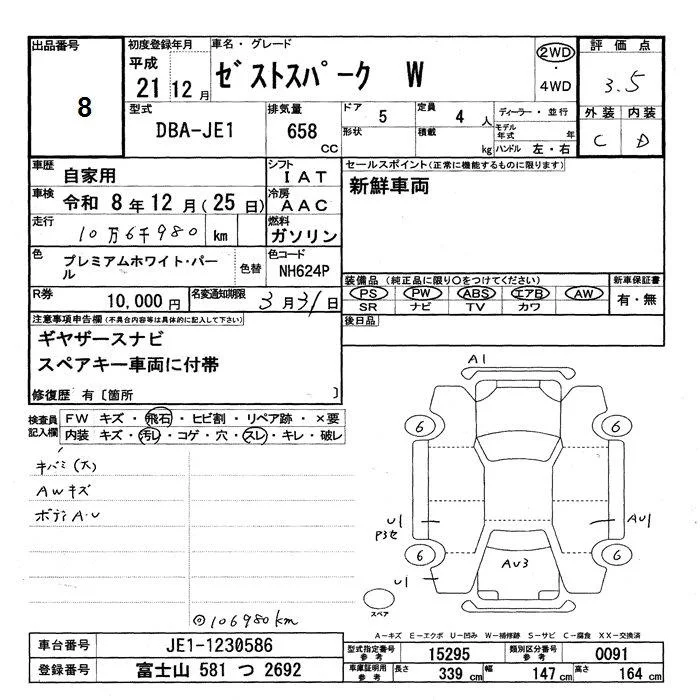 出品番号
8
初度登録年月
平成
21 12 月
車名・グレード
ゼストスパーク W
2WD
・
4WD
評価点
3.5
外装 内装
C D
型式
DBA-JE1
排気量
658 CC
ドア 5
形状
定員 4 人
積載 kg
ディーラー・並行
モデル年式 年
ハンドル 左・右
車歴 自家用
シフト IAT
車検 令和 8 年 12 月 ( 25 日)
冷房 AAC
走行 10万6千980 km
燃料 ガソリン
色 プレミアムホワイト・パール
色替
色コード NH624P
R券 10,000 円
名変通知期限 3 月 31 日
セールスポイント(正常に機能するものに限ります)
新鮮車両
装備品 (純正品に限り○をつけてください)
PS PW ABS エアB AW
SR ナビ TV カワ
新車保証書
有・無
後日品
注意事項申告欄(不具合内容等は具体的に記入して下さい)
ギヤザースナビ
スペアキー車両に付帯
修復歴 有〔箇所 〕
検査員記入欄
FW キズ・飛石・ヒビ割・リペア跡・×要
内装 キズ・汚レ・コゲ・穴・スレ・キレ・破レ
キバミ(大)
AWキズ
ボディA・U
◎106980km
A1
6 6
U1
P3セ
AU1
6 6
U1
AU3
スペア
A-キズ E-エクボ U-凹み W-補修跡 S-サビ C-腐食 XX-交換済
車台番号 JE1-1230586
登録番号 富士山 581 つ 2692
型式指定番号 参考 15295
類別区分番号 参考 0091
車庫証明用 参考 長さ 339 cm 幅 147 cm 高さ 164 cm